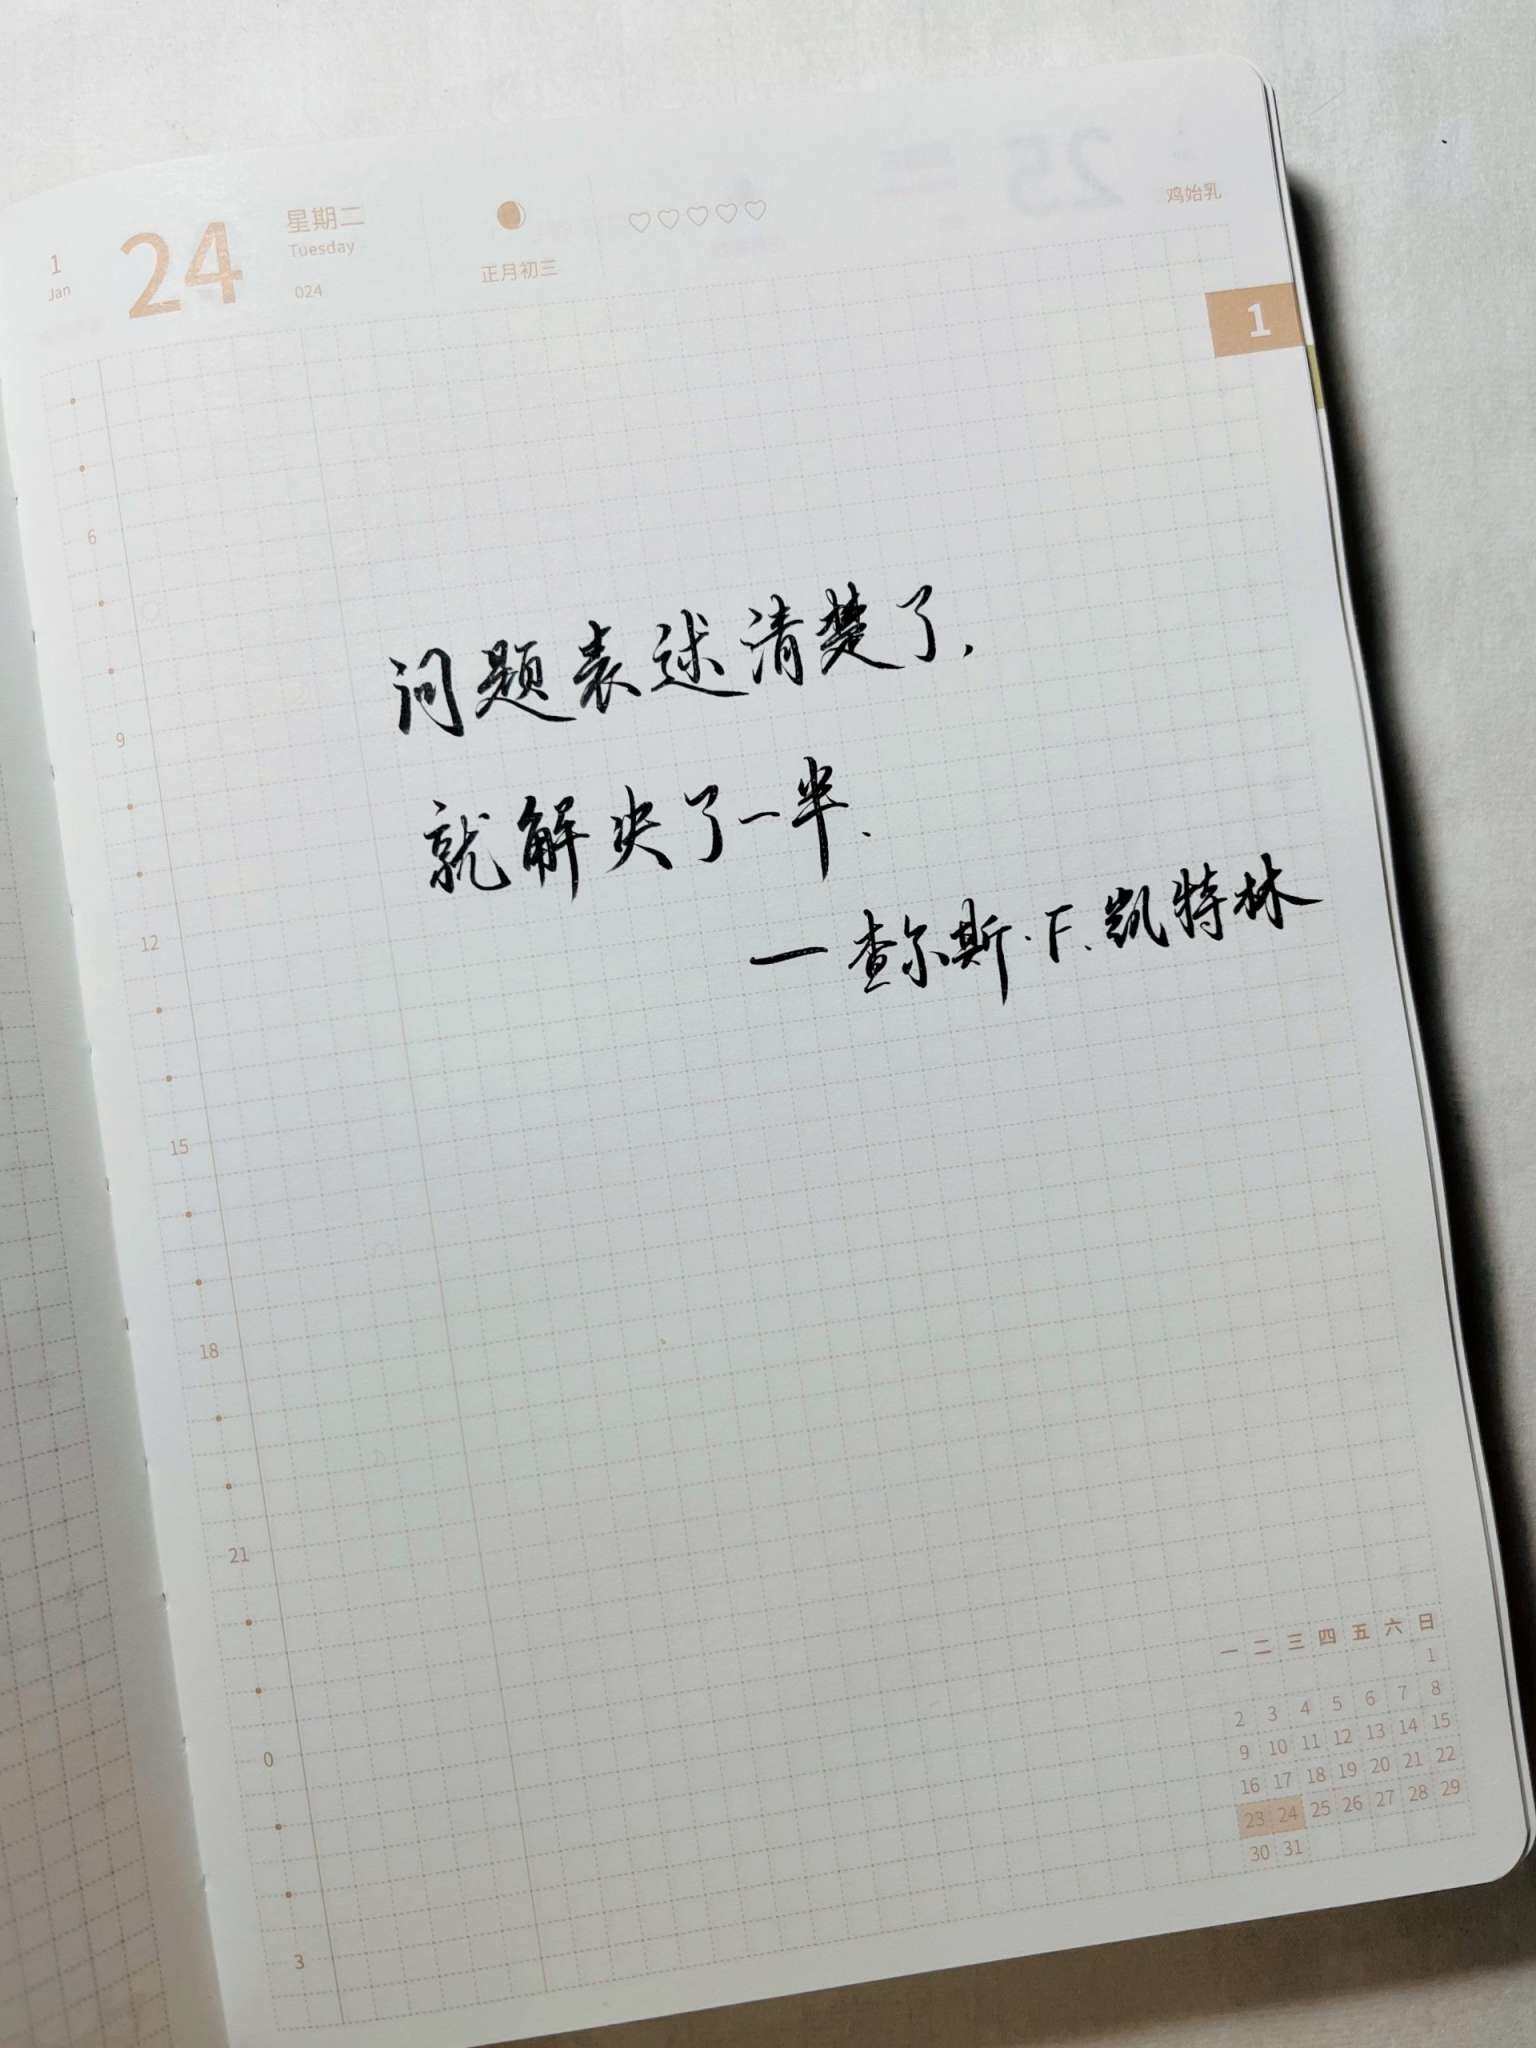 1
Jan
24
星期二
Tuesday
024
正月初三
鸡始乳
1
问题表述清楚了,
就解决了一半.
— 查尔斯·F.凯特林
6
9
12
15
18
21
0
3
一 二 三 四 五 六 日
1
2 3 4 5 6 7 8
9 10 11 12 13 14 15
16 17 18 19 20 21 22
23 24 25 26 27 28 29
30 31